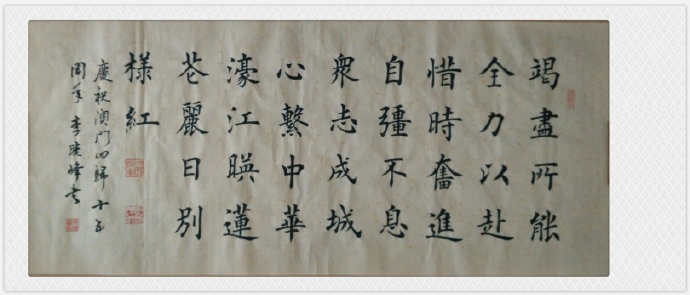 竭盡所能
全力以赴
惜時奮進
自彊不息
衆志成城
心繫中華
濠江暎蓮
花麗日别
樣紅
慶祝澳門回歸十五
周年 李 峰書